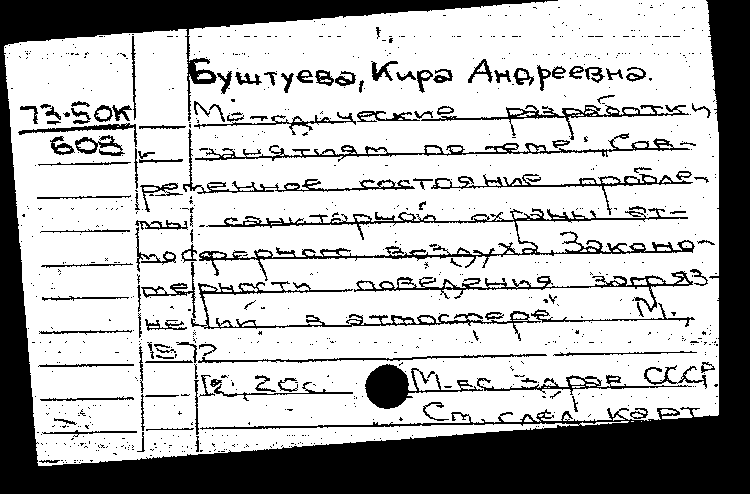 Буштуева, Кира Андреевна.
73-50К
608
Методические разработки
к занятиям по теме „Сов-
ременное состояние пробле-
мы санитарной охраны ат-
мосферного воздуха. Законо-
мерности поведения загряз-
нений в атмосфере". М.,
1972
12, 20с. М-во здрав СССР.
Ст. след. карт